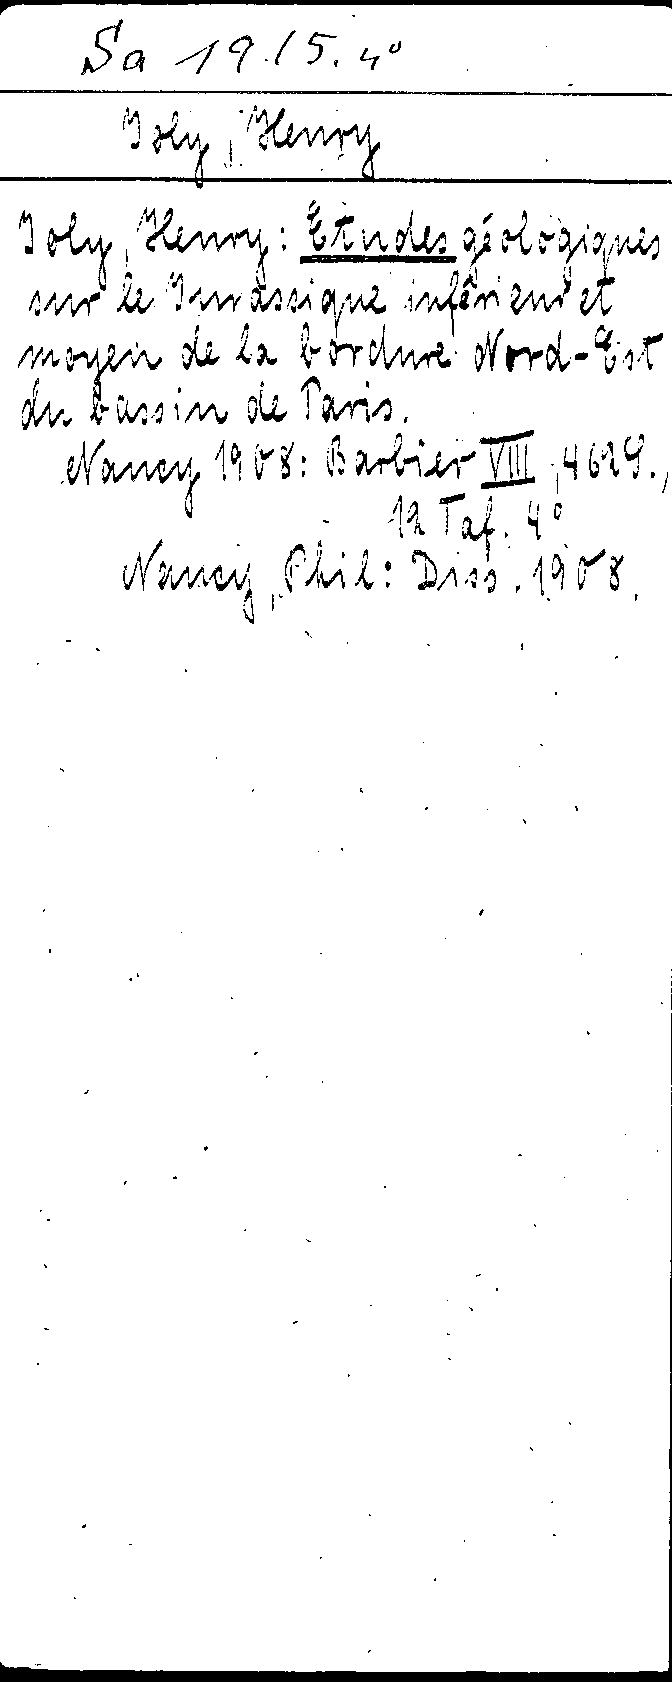 Sa 1915. 4°
Joly, Henry
Joly, Henry: Etudes géologiques
sur le Jurassique inférieur et
moyen de la bordure Nord-Est
du bassin de Paris.
Nancy 1908: Barbier VIII, 462 S.,
12 Taf. 4°
Nancy, Phil. Diss. 1908.